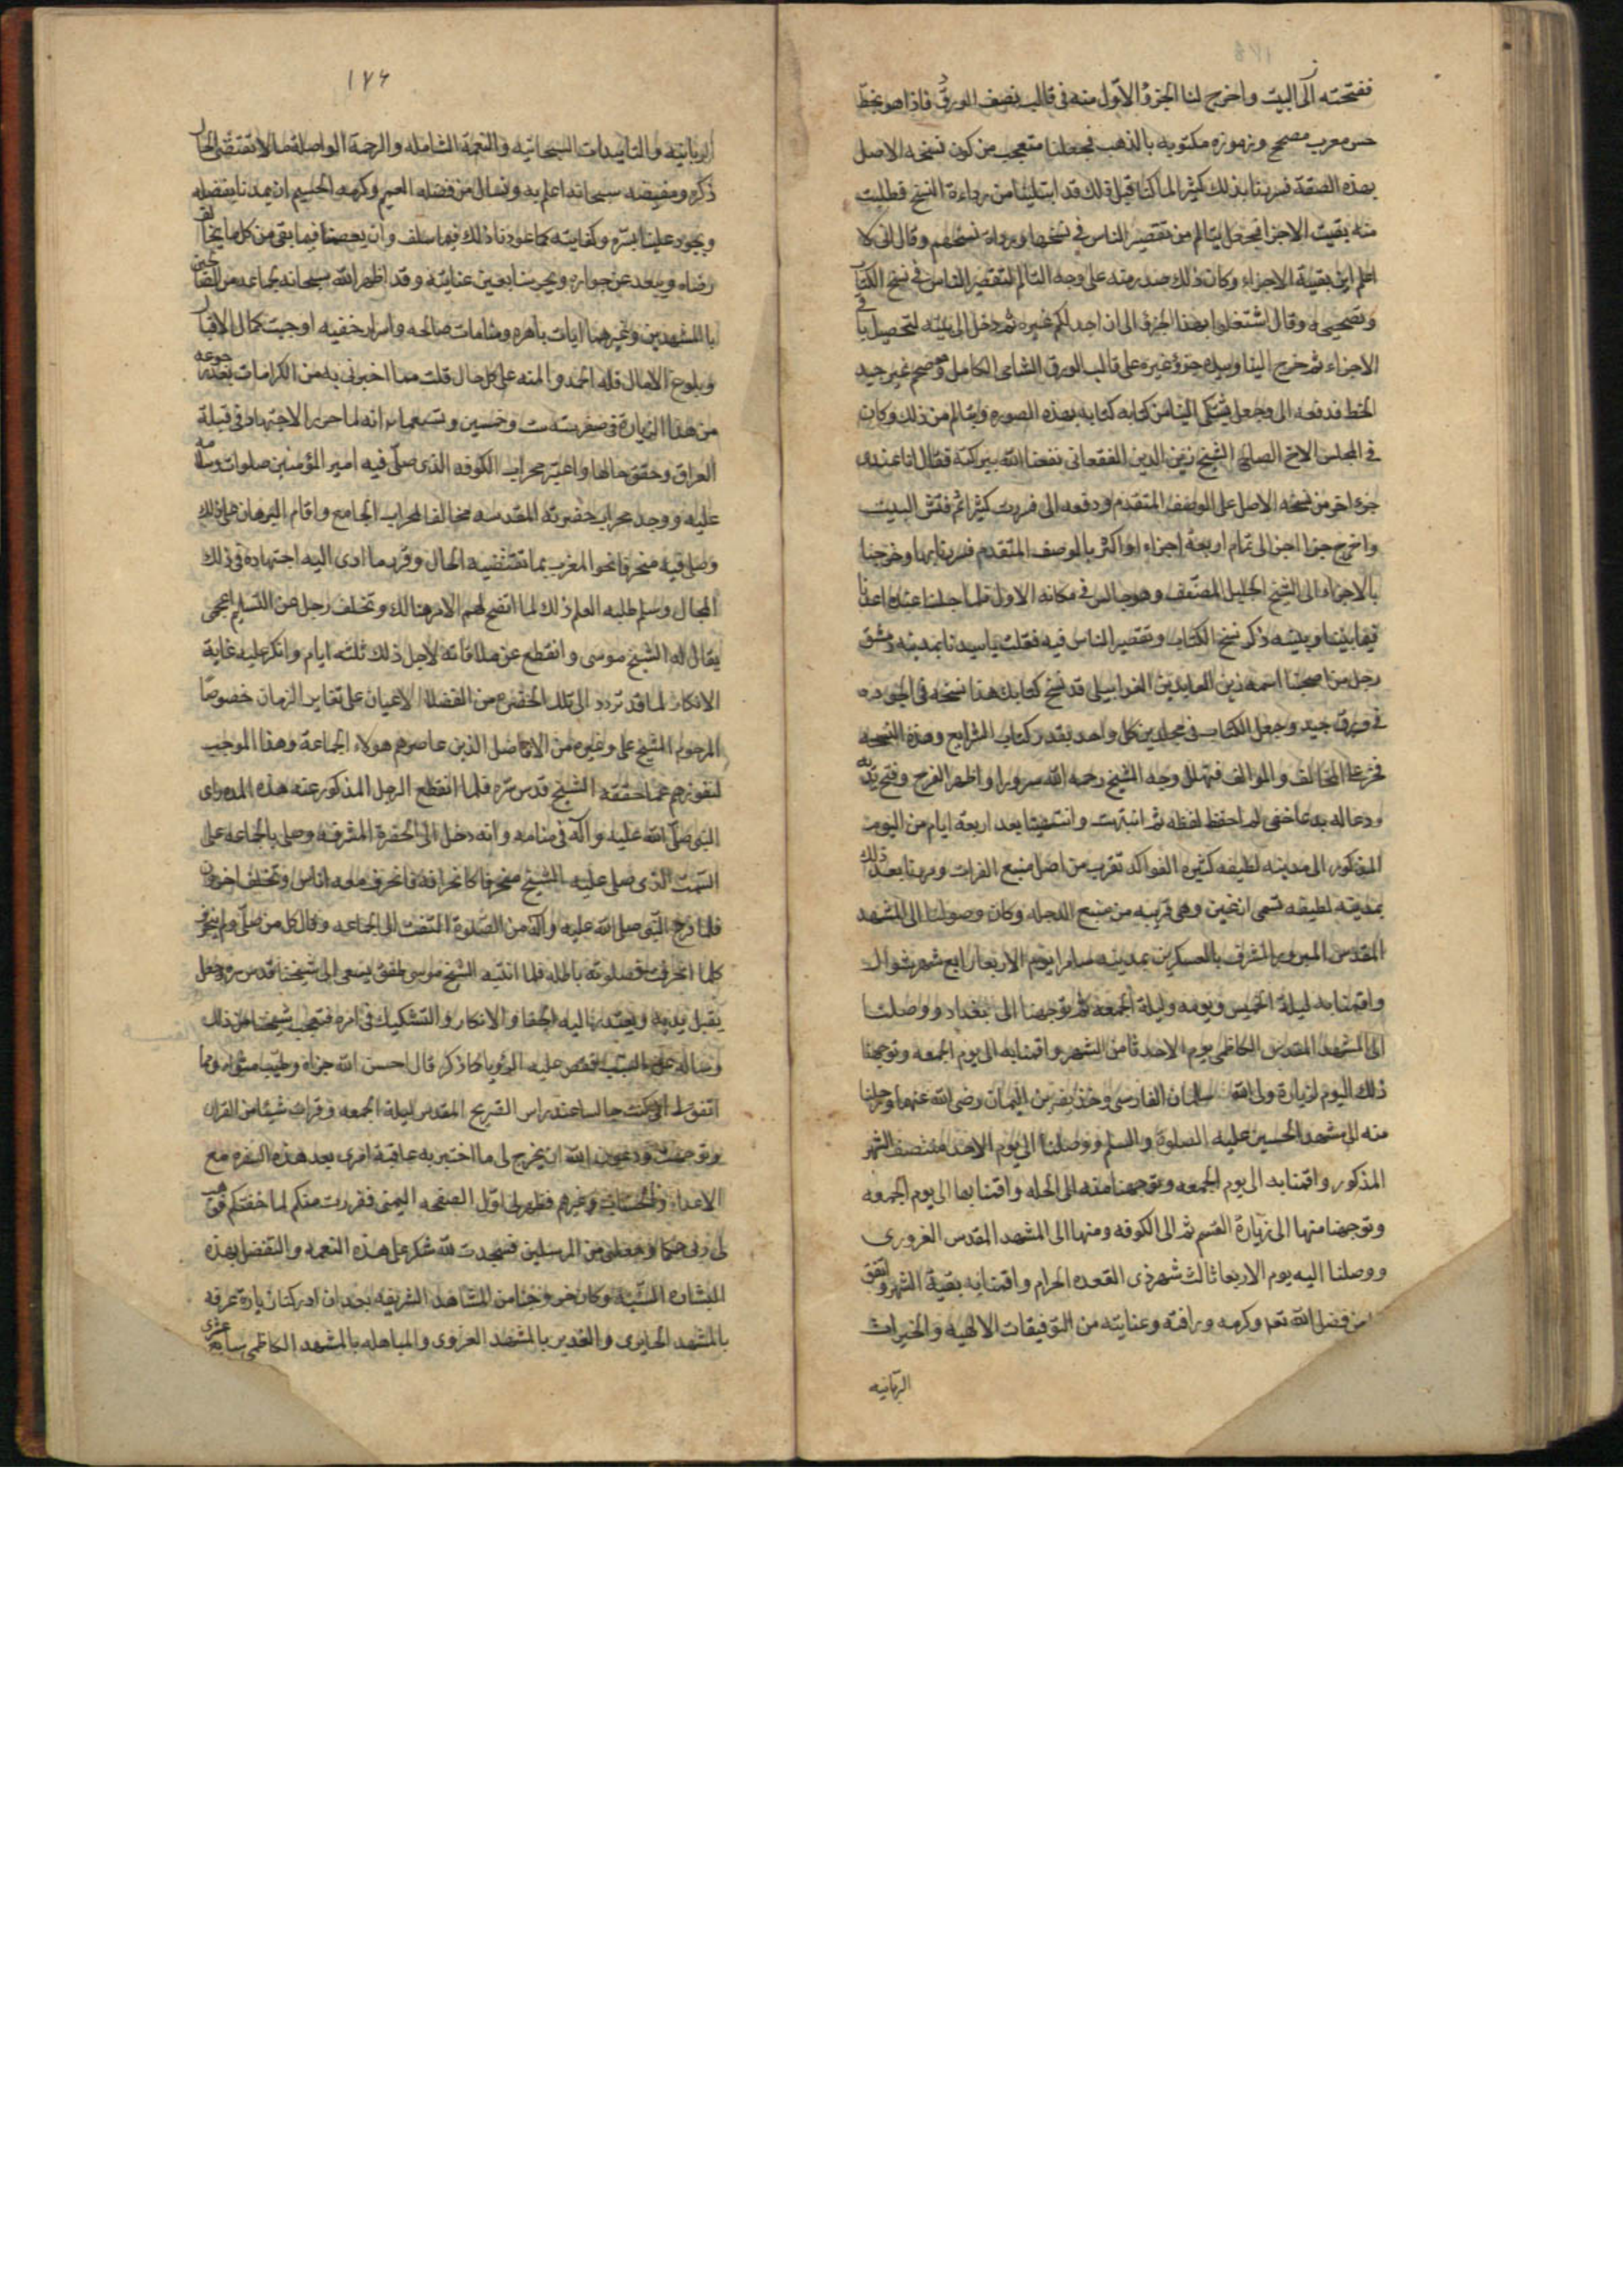 ففتحته الى البيت واخرج لنا الجزؤ الاول منه فى قالب نصف الورق فاذا هو بخط
حسن معرب مصحح ورموزه مكتوبه بالذهب فجعلنا متعجب من كون نسخه الاصل
بهذه الصفة فسررنا بذلك كثيرا لما كنا قبل ذلك قد ابتلينا من رداءة النسخ فطلبت
منه بقيت الاجزا فجعل يتالم من تقصير الناس فى نسخها ورداة نسخهم وقال انى لا
اعلم اين بقية الاجزاء وكان ذلك صدر منه على وجه التالم لتقصير الناس فى نسخ الكتاب
وتصحيحه وقال اشتغلوا بهذا الجزؤ الى ان اجد لكم غيره ثم دخل الى بيته لتحصيل باقى
الاجزاء ثم خرج الينا وبيده جزؤ غيره على قالب الورق الشامى الكامل وهو مصحح غير جيد
الخط فدفعه الى وجعل يشتكى الينا من كتابه كتابه بهذه الصوره ويتالم من ذلك وكان
فى المجلس الاخ الصالح الشيخ زين الدين الفقعانى نفعنا الله ببركته فقال انا عندى
جزء اخر من نسخه الاصل على الوصف المتقدم ودفعه الى فررت كثيرا ثم فتش البيت
واخرج جزا الى تمام اربعة اجزاء او اكثر بالوصف المتقدم فسررنا بها وخرجنا
بالاجزاء الى الشيخ الجليل المصنف وهو جالس فى مكانه الاول فلما جلسنا عنده اعدنا
فيما بيننا وبينه ذكر نسخ الكتاب وتقصير الناس فيه فقلت يا سيدنا بمدينه دمشق
رجل من اصحبنا اسمه زين العابدين الغرابيلى قد نسخ كتابك هذا نسخه فى الجوده
فى ورق جيد وجعل الكتاب فى مجلدين كل واحد بقدر كتاب الشرايع وهذه النسخه
فخر على المخالف والموالف فتهلل وجه الشيخ رحمه الله سرورا واظهر الفرح وفتح يديه
ودعا له بدعا خفى لم احفظ لفظه ثم انتبهت وانتهينا بعد اربعة ايام من اليوم
المذكور الى مدينه لطيفه كثيره الفواكد تقرب من اصل منبع الفرات ومررنا بعد ذلك
بمدينه لطيفه تسمى ارغين وهى قريبه من منبع الدجله وكان وصولنا الى المشهد
المقدس المبرور المشرف بالعسكرين بمدينه سامرا يوم الاربعا رابع شهر شوال
واقمنا به ليلة الخميس ويومه وليلة الجمعه ثم توجهنا الى بغداد ووصلنا
الى المشهد المقدس الكاظمى يوم الاحد ثامن الشهر واقمنا به الى يوم الجمعه وتوجهنا
ذلك اليوم لزيارة ولى الله سلمان الفارسى وحذيفه بن اليمان رضى الله عنهما ورحلنا
منه الى مشهد الحسين عليه الصلوة والسلم ووصلنا الى يوم الاحد منتصف الشهر
المذكور واقمنا به الى يوم الجمعه وتوجهنا منه الى الحله واقمنا بها الى يوم الجمعه
وتوجهنا منها الى زيارة القسم ثم الى الكوفه ومنها الى المشهد المقدس الغروى
ووصلنا اليه يوم الاربعا ثالث شهر ذى القعده الحرام واقمنا به بقية الشهر واتفق
من فضل الله تع وكرمه ورافته وعنايته من التوفيقات الالهيه والخيرات
الربانيه
١٧٦
الربانيه والتاييدات السبحانيه والنعمة الشامله والرحمة الواصله ما لا تقتضى الحال
ذكره ومفيضه سبحانه اعلم به ونسال من فضله العميم وكرمه الجسيم ان يمدنا بفضله
ويجود علينا بستره وكفايته كما عودنا ذلك فيما سلف وان يعصمنا فيما بقى من كل ما يخالف
رضاه ويبعد عن جواره ويحرسنا بعين عنايته وقد اظهر الله سبحانه
بالمشهدين وغيرهما ايات باهره ومنامات صالحه واسرار خفيه اوجبت كمال الاقبال
وبلوغ الامال فله الحمد والمنه على كل حال قلت مما اخبرنى به من الكرامات بعد رجوعه
من هذا الزيارة فى صفر سنه ست وخمسين وتسعمايه انه لما حرر الاجتهاد فى قبلة
العراق وحقق حالها واعتبر محراب الكوفه الذى صلى فيه امير المؤمنين صلوات الله وسلامه
عليه ووجد محراب حضرته المقدسه مخالفا لمحراب الجامع واقام البرهان على ذلك
وصلى فيه منحرفا نحو المغرب بما تقتضيه الحال وقرر ما ادى اليه اجتهاده فى ذلك
المجال وسلم طلبه العلم ذلك لما اتضح لهم الامر هنالك وتخلف رجل عن التسليم اعجمى
يقال له الشيخ موسى وانقطع عن ملاقاته لاجل ذلك ثلثه ايام وانكر عليه غاية
الانكار لما قد تردد الى تلك الحضره من الفضلا الاعيان على تغاير الزمان خصوصا
المرحوم الشيخ على وغيره من الافاضل الذين عاصرهم هولاء الجماعة وهذا الموجب
لنفورهم عما حققه الشيخ قدس سره فلما انقطع الرجل المذكور عنه هذه المده راى
النبى صلى الله عليه واله فى منامه وانه دخل الى الحضرة المشرفه وصلى بالجماعه على
السمت الذى صلى عليه الشيخ منحرفا كانحرافه فانحرف معه اناس وتخلف اخرون
فلما فرغ النبى صلى الله عليه واله من الصلوة التفت الى الجماعه وقال كل من صلى ولم ينحرف
كما انحرفت فصلوته باطله فلما انتبه الشيخ موسى طفق يسعى الى شيخنا قدس سره وجعل
يقبل يديه ويعتذر اليه من الجفا والانكار والتشكيك فى امره فتعجب شيخنا من ذلك
وساله عن السبب فقص عليه الرؤيا كما ذكر قال احسن الله جزاه وطيب مثواه ومما
اتفق لى انى كنت جالسا عند راس الضريح المقدس ليلة الجمعه وقرات شيئا من القران
وتوجهت ودعوت الله ان يخرج لى ما اختبر به عاقبة امرى بعد هذه السفره مع
الاعداء والحساد وغيرهم فظهر لى اول الصفحه اليمنى ففررت منكم لما خفتكم فوهب
لى ربى حكما وجعلنى من المرسلين فسجدت لله شكرا على هذه النعمه والتفضل بهذه
البشاره السنيه وكان خروجنا من المشاهد الشريفه بعد ان ادركنا زيارة عرفه
بالمشهد الحايرى والغدير بالمشهد الغروى والمباهله بالمشهد الكاظمى سابع عشرى